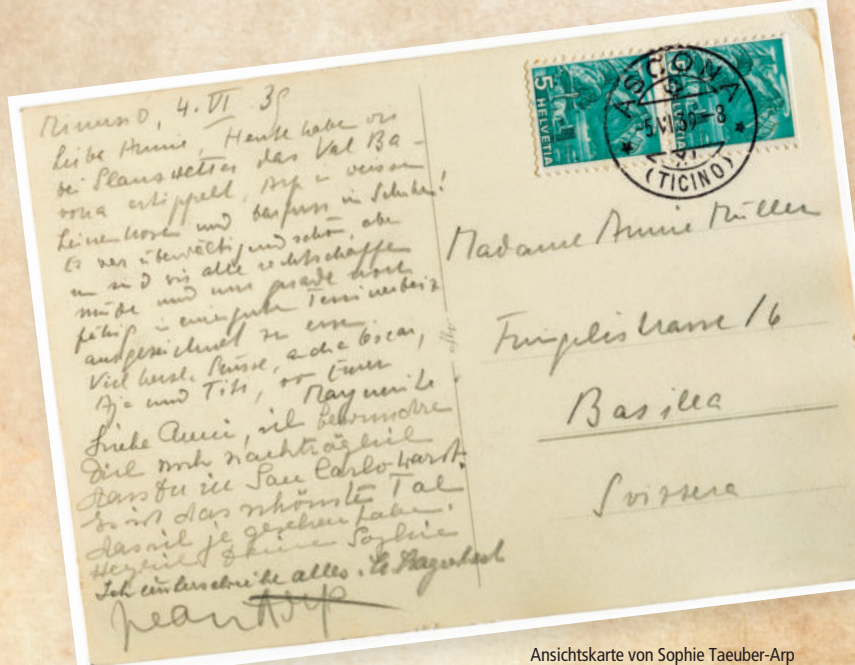 Minusio, 4. VI 39
Liebe Annie, Heute haben wir
bei Wetter das Val Ba-
vona ertippelt, Arp in weissen
Leinenhosen und barfuss in Schuhen!
Es war überwältigend schön, aber
nun sind wir alle rechtschaffen
müde und nur gerade noch
fähig in einer guten Tessinerbeiz
ausgezeichnet zu essen.
Viel herzl. Grüsse, an die Oscar,
und Titi, von Eurer
Marguerite
Liebe Anni, ich bewundre
Dich noch nachträglich
dass Du in San Carlo warst.
Es ist das schönste Tal
das ich je gesehen habe.
Herzlich Deine Sophie
Ich unterschreibe alles.
Jean Arp
5 HELVETIA
HELVETIA
ASCONA
-5.VI.39-8
(TICINO)
Madame Annie Müller
16
Basilea
Svizzera
Ansichtskarte von Sophie Taeuber-Arp